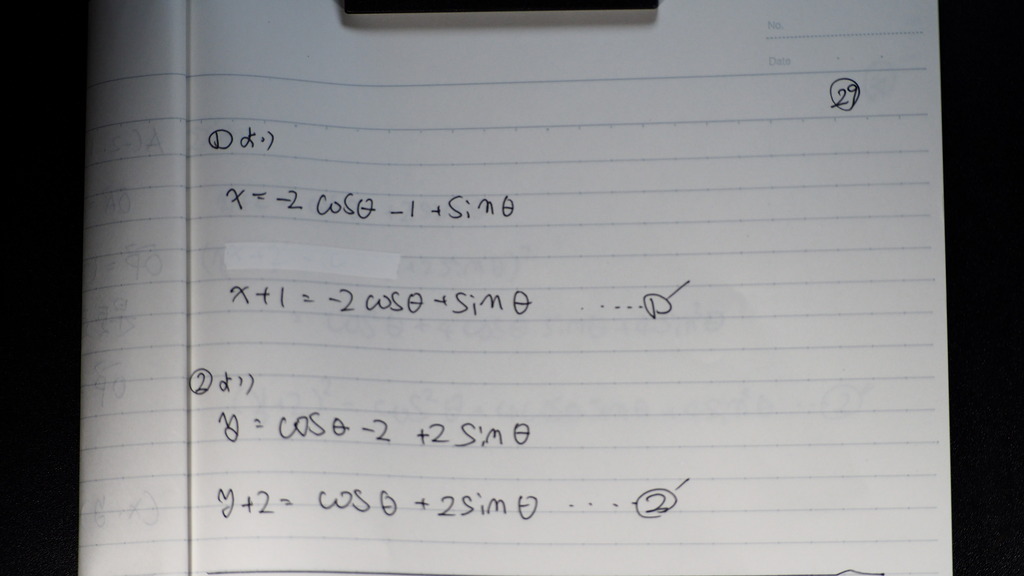 No.
Date
㉙
①より
x = -2 cosθ -1 + sinθ
x+1 = -2 cosθ + sinθ ......①'
②より
y = cosθ -2 +2 sinθ
y+2 = cosθ + 2sinθ ....②'